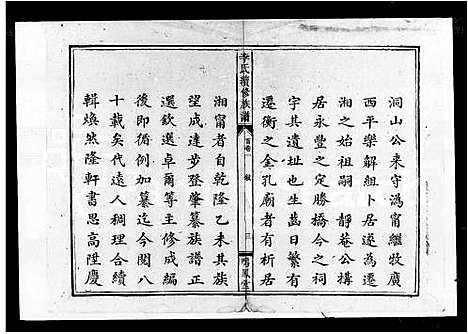 洞山公来守溈甯繼牧廣
西平樂解組卜居遂為遷
湘之始祖嗣 靜菴公搆
居永豐之定勝橋今之祠
宇其遺址也生日繁有
遷衡之金孔廟者有析居
李氏續修族譜
首卷
三
鳴鳳堂
湘甯者自乾隆乙未其族
望成達步登肇纂族譜正
選欽選卓爾等主修成編
後即循例加纂迄今閱八
十載矣代遠人稠理合續
輯煥然隆軒書思高陞慶